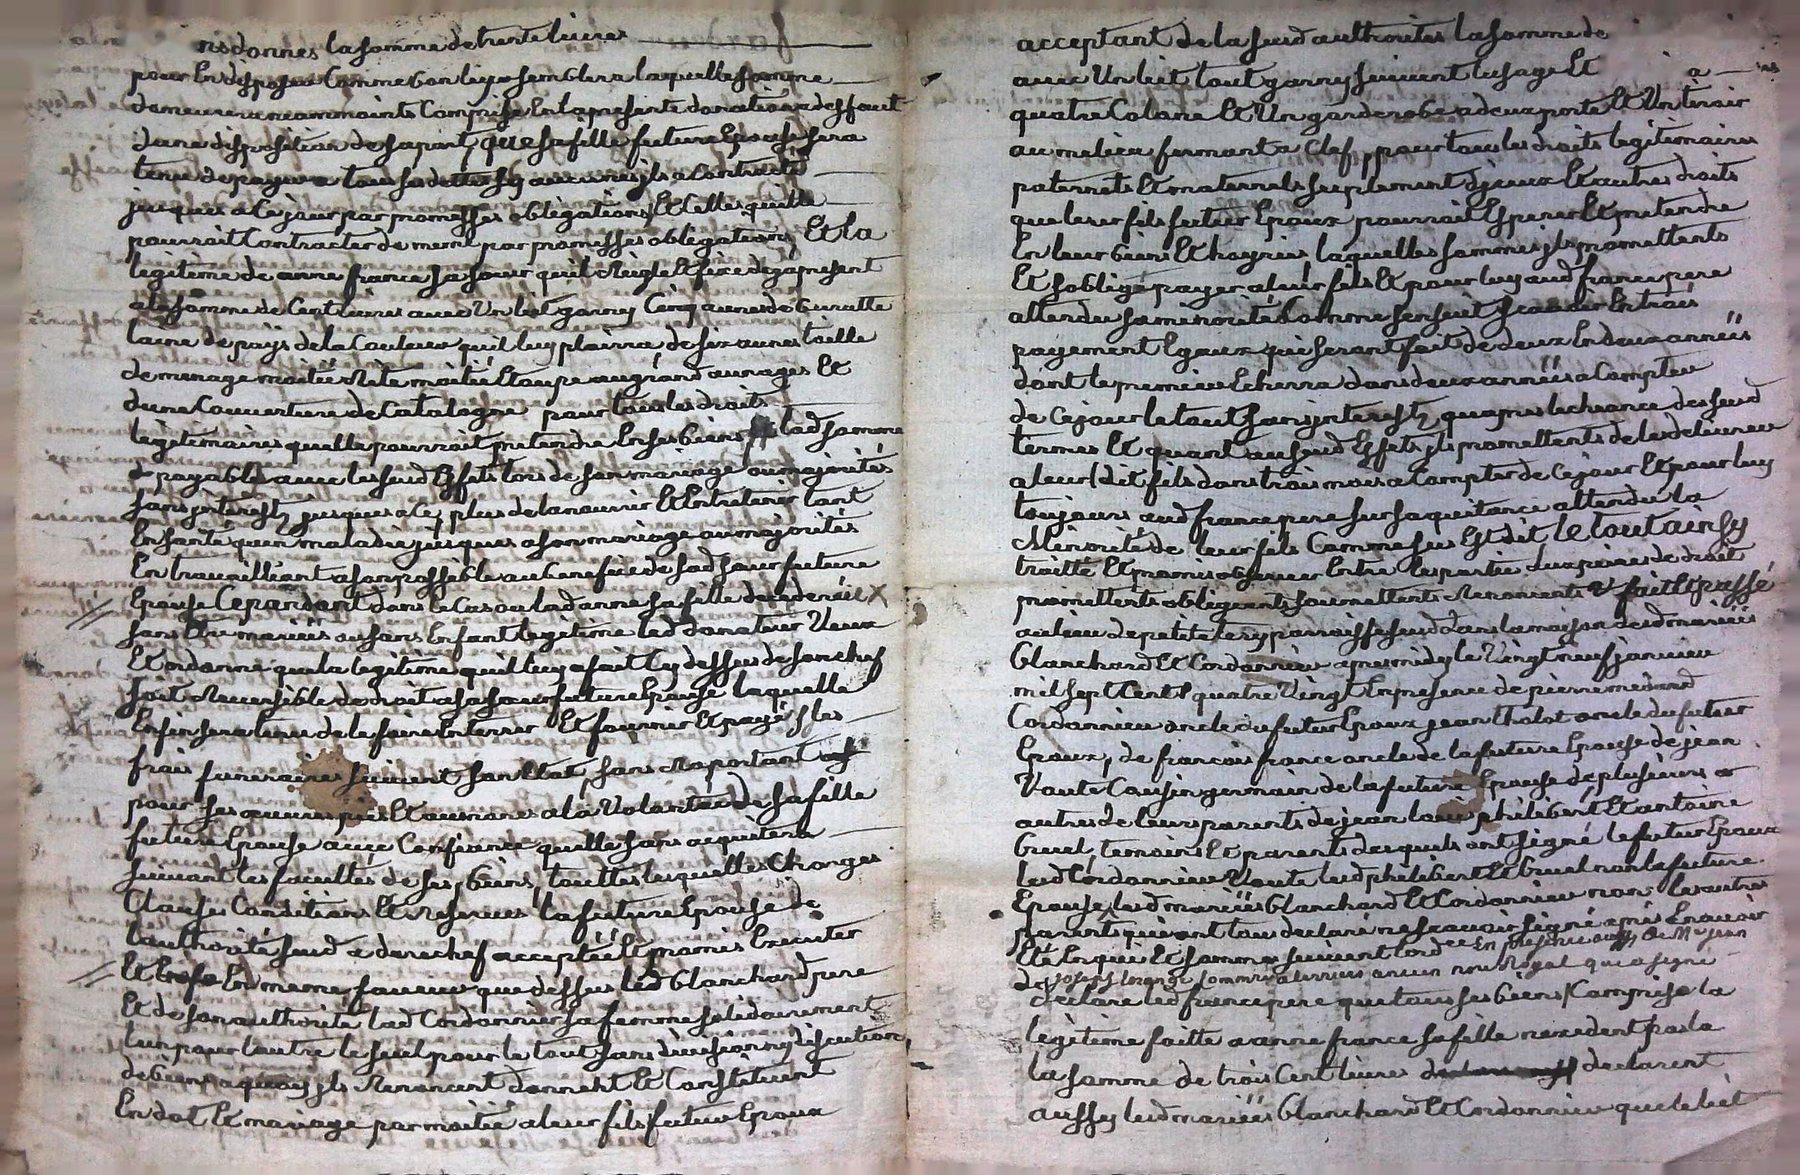 donnes la somme de trente livres
pour En disposer Comme bon luy semblera laquelle somme
demeurera neammoints Comprise En la presente donation a deffaut
dune disposition de sa part, que sa fille future Epouse sera
tenue de payer a tous ses dettes sy aucunes jls a Contracté
jusques a Ce jour par promesses obligations Et Celles quille
pourroit Contracter de meme par promesses obligations, Et la
legitime de anne france sa soeur quil Reigle Et fixe des a present
a la somme de Cent livres avec Un lit garny Cinq aunes de burette
laine de pays de la Couleur quil luy plairra de six aunes toille
de menage moitié Rite moitié Etoupe au grand aunages Et
dune Couvertiere de Catalogne pour tous les droits
legitimaires quelle pourroit pretendre En ses biens lad somme
payable avec lesusd Effets lors de son mariage ou majorités
sans jnterest, jusques a Ce, plus de la nourrir Et Entretenir tant
En santé quen maladie jusques a son mariage ou majorités
En travailliant a son possible au benefice de sad soeur future
Epouse Cependant dans le Cas ou lad anne sa fille decederoit X
sans Etre mariéés ou sans Enfant legitime led donateur Veux
Et ordonne que la legitime quil luy a fait Cy dessus de son chef
soit Reversible de droit a sa soeur future Epouse laquelle
Enfin sera tenue de le faire Enterrer Et fournir Et payé les
frais funeraires suivent son Etat, sans Raportant
pour ses oeuvres pies Et aumones a la Volontée de sa fille
future Epouse avec Confiance quelle san acquitera
suivant les facultés de ses biens, touttes lesquelles Charges
Clauses Conditions Et reserves la future Epouse de
lauthorité susd a derechef acceptéé Et promis Executer
Et En meme faveur que dessus led blanchard pere
Et de son authorité lad Cordonnier sa femme solidairement
lun pour lautre le seul pour le tout sans division ny discution
de biens a quoy jls Renoncent donnent Et Constituent
En dot Et mariage par moitié a leur fils futur Epoux
acceptant de la susd authorites la somme de
avec Un lit tout garny suivent lusage Et a
quatre Colane Et Un garderobe a deux porte Et Un tiroir
au milieu fermant a Clef, pour tous les droits legitimaires
paternels Et maternels suplement djceux Et autres droits
que leur fils futur Epoux pourroit Esperer Et pretendre
En leur biens Et hoyries laquelles sommes jls promettents
Et soblige payer a leur fils Et pour luy aud france pere
attendu sa minorité Comme sensuit scavoir En trois
payement Egaux qui seront fait de deux En deux annéés
dont le premier Echerra dans deux annéés a Compter
de Ce jour le tout sans jnterest, quapres lecheance desusd
termes Et quant aususd Effets jls promettents de les delivrer
a leur dit fils dans trois mois a Compter de Ce jour Et pour luy
toujours aud france pere sur sa quitance attendu la
Minorité de leur fils Comme sus Est dit le tout ainsy
traitté Et promis observer Entre les partie a la peine de droit
promettents obligeants soumettents Renoncents & fait Et passé
au lieu de petite parroisse susd dans la maison desd mariéés
blanchard Et Cordonnier apres midy le Vingt neuf janvier
mil sept Cent quatre Vingt En presence de pierre medard
Cordonnier oncle du futur Epoux jean tholot oncle du futur
Epoux, de francois france oncle de la future Epouse de jean
Voute Cousin germain de la future Epouse de plusieurs
autres de leurs parents de jean louis philibert Et antoine
bruel temoins Et parents desquels ont signé le futur Epoux
led Cordonnier Voute led philibert Et bruel non la future
Epouse lesd mariéés blanchard Et Cordonnier non les autres
parents qui ont tous declaré ne scavoir signé apres En avoir
Eté Enquis Et sommé suivent lord ce En presence aussy de Me jean
joseph Commre a terriers ancien nore Royal qui a signé
declare led france pere que tous ses biens Compris la
legitime faitte a anne france sa fille nexedent pas la
la somme de trois Cent livres declarent
aussy lesd mariéés blanchard Et Cordonnier que le lit